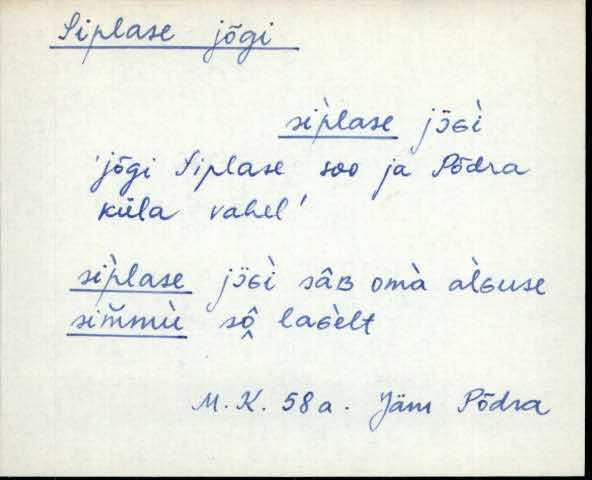 Siplase jõgi
sìplase jɔ̈ɢì
'jõgi Siplase soo ja Põdra
küla vahel'
sìplase jɔ̈ɢì sâʙ omà alɢuse
sim̆mù sô̭ laɢèlt
M.K. 58a. Jäm Põdra